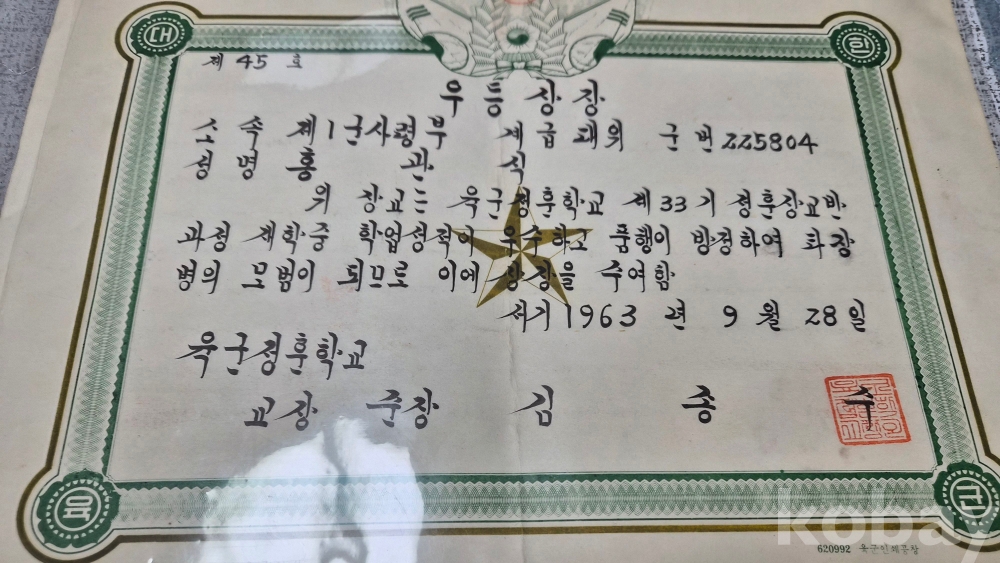 대 한
제 45 호
우등상장
소속 제1군사령부 계급 대위 군번 225804
성명 홍관식
위 장교는 육군정훈학교 제33기 정훈장교반
과정 재학중 학업성적이 우수하고 품행이 방정하여 화장
병의 모범이 되므로 이에 상장을 수여함
서기 1963 년 9 월 28 일
육군정훈학교
교장 준장 김종수
육 군
620992 육군인쇄공창
kobay